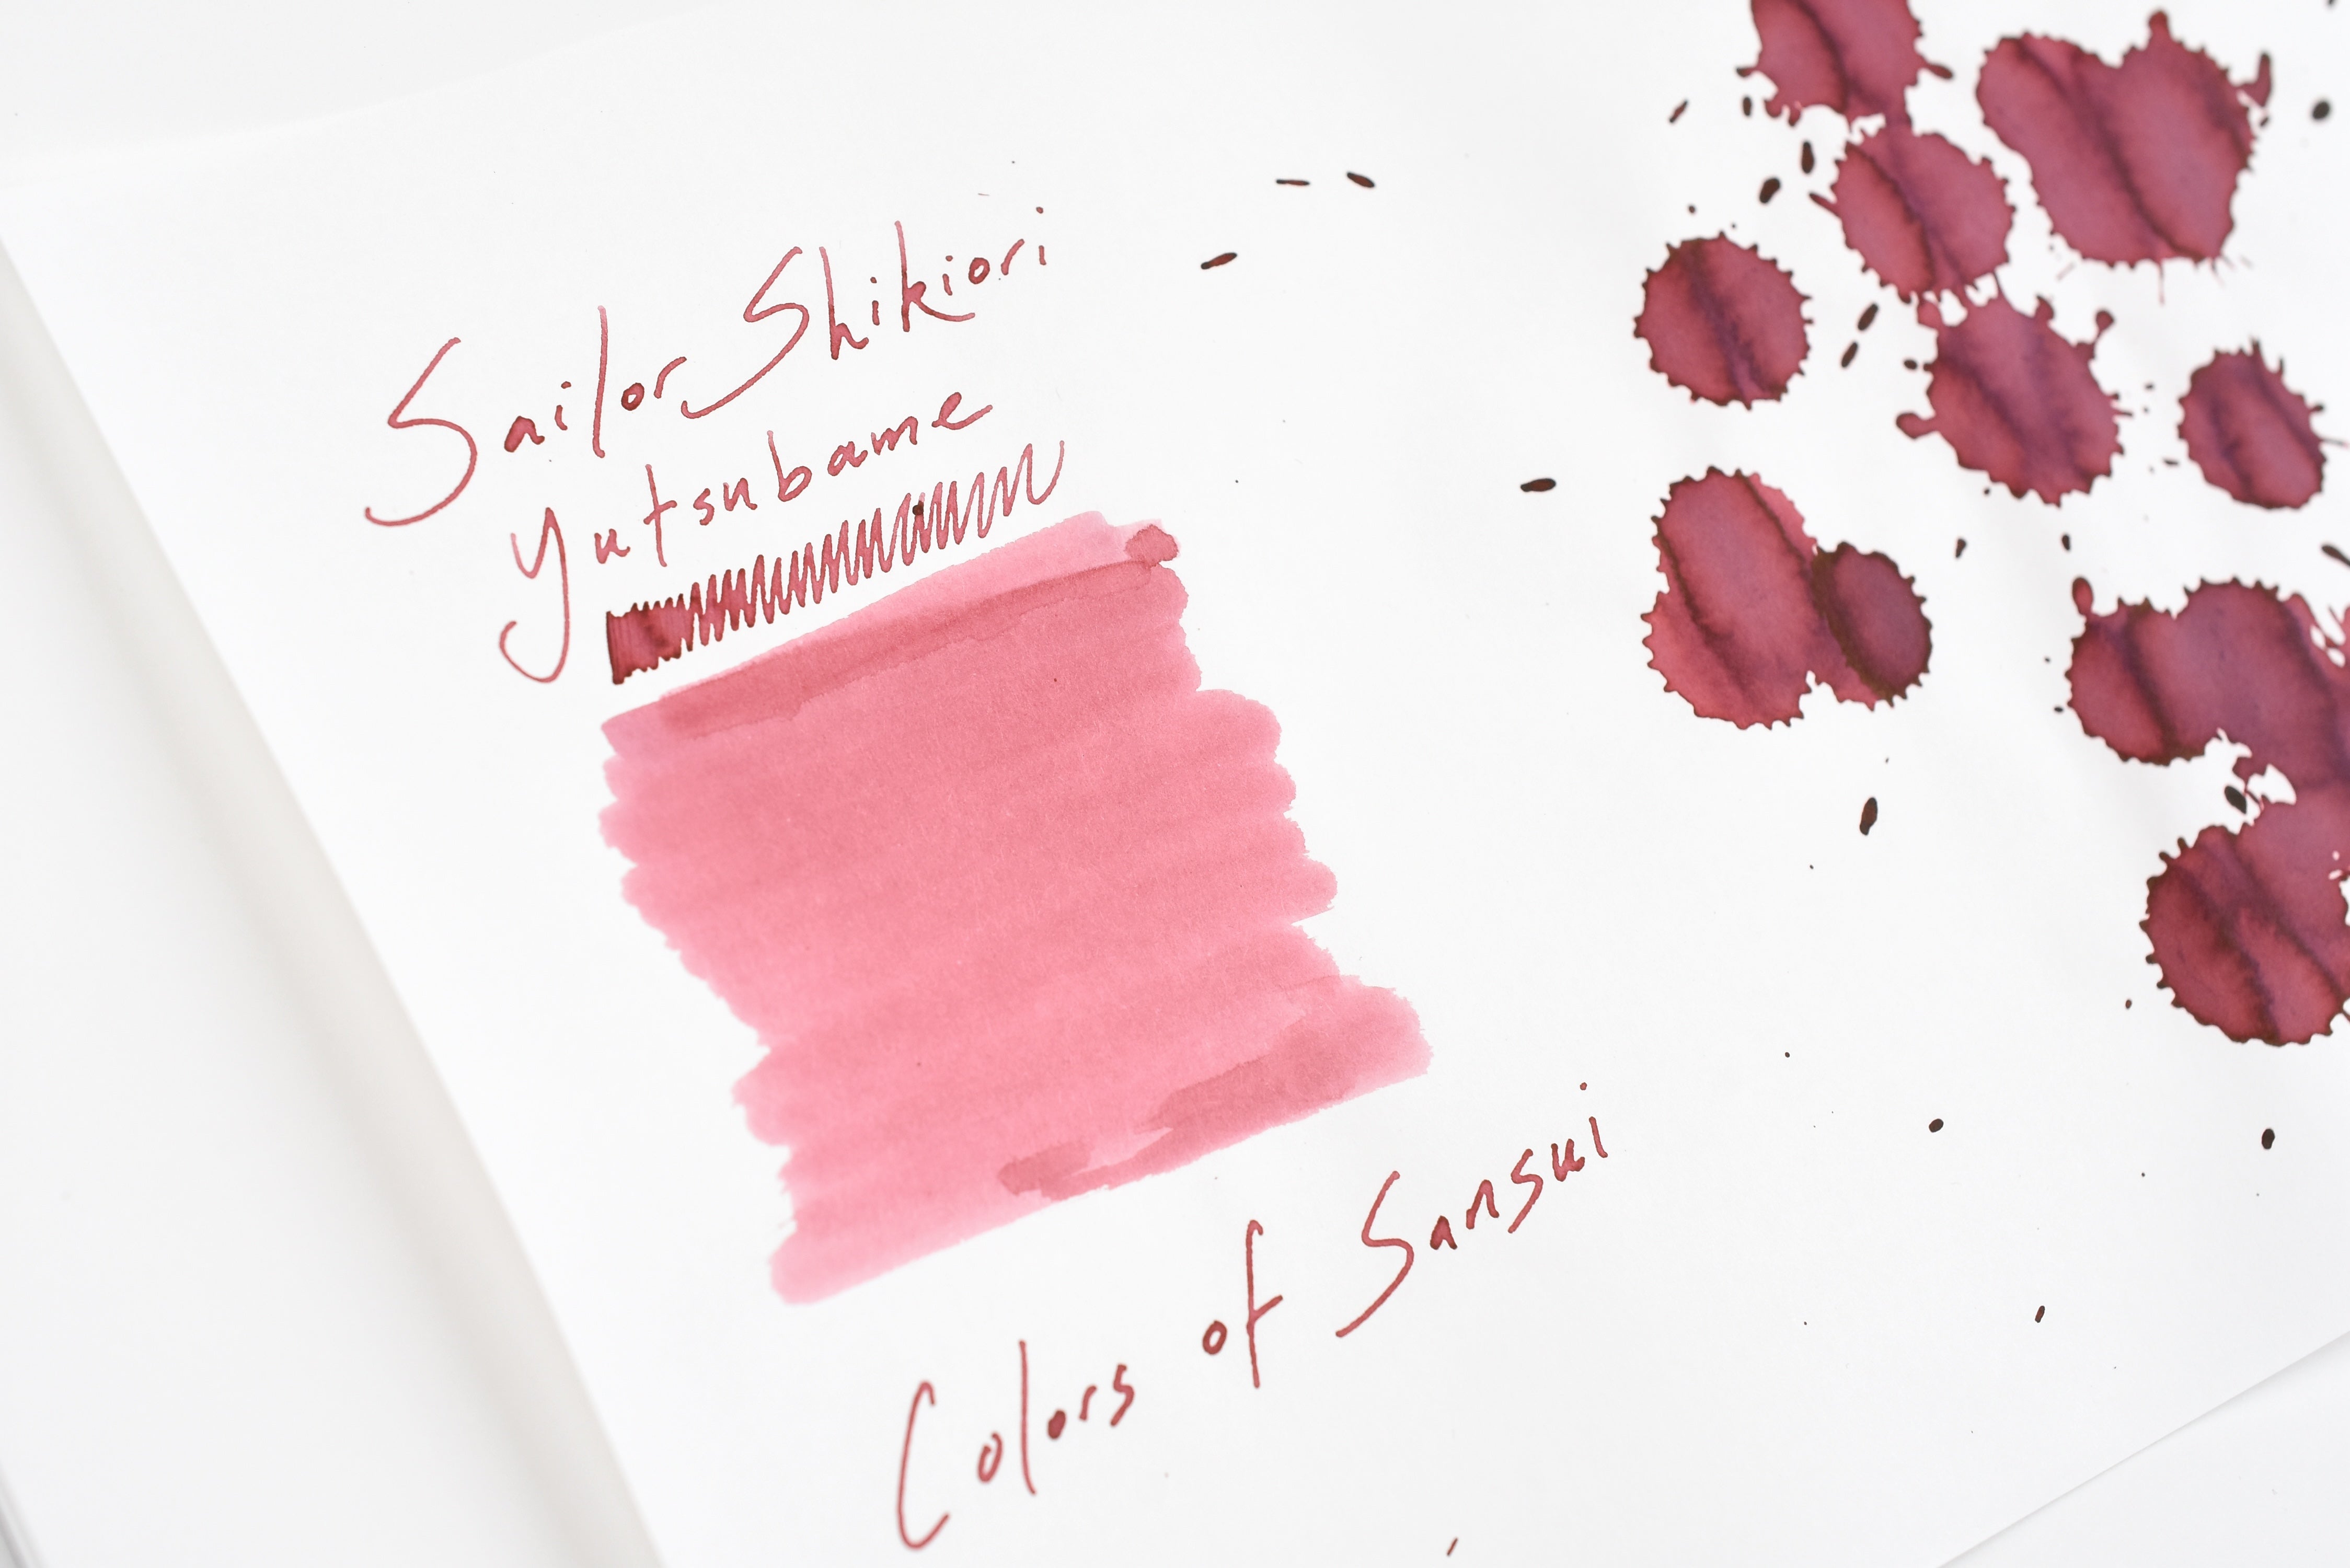 Sailor Shikiori
Yutsubame
Colors of Sansui